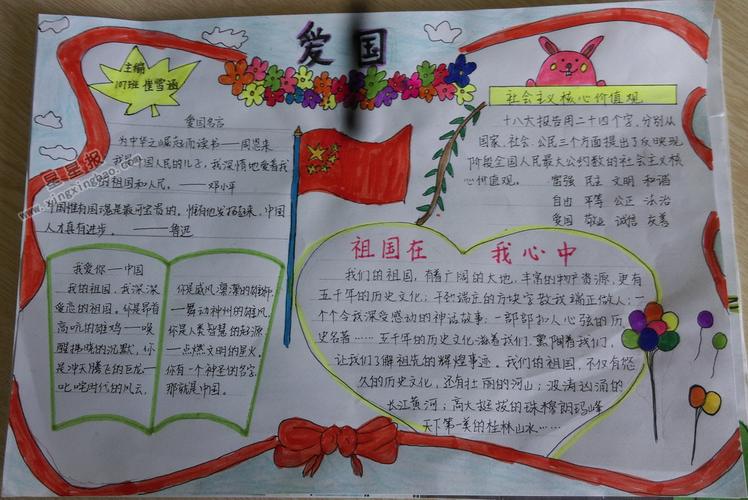 爱国
主编
107班 崔雪涵
爱国名言
为中华之崛起而读书——周恩来
我是中国人民的儿子,我深情地爱着我
的祖国和人民。——邓小平
中国惟有国魂是最可宝贵的。惟有他发扬起来,中国
人才真有进步。——鲁迅
星星报
www.xingxingbao.com
社会主义核心价值观
十八大报告用二十四个字,分别从
国家、社会、公民三个方面提出了反映现
阶段全国人民最大公约数的社会主义核
心价值观。 富强 民主 文明 和谐
自由 平等 公正 法治
爱国 敬业 诚信 友善
我爱你——中国
我的祖国,我深深
爱恋的祖国。你是昂首
高吭的雄鸡——唤
醒拂晓的沉默,你
是冲天腾飞的巨龙——
叱咤时代的风云,
你是威风凛凛的雄狮
——舞动神州的雄风,
你是人类智慧的起源
——点燃文明的星火。
你有一个神圣的名字,
那就是中国。
祖国在 我心中
我们的祖国,有着广阔的大地,丰富的物产资源,更有
五千年的历史文化;千万端正的方块字教我端正做人;一
个个令我深受感动的神话故事;一部部扣人心弦的历
史名著……五千年的历史文化滋养我们,熏陶着我们,
让我们了解祖先的辉煌事迹。我们的祖国,不仅有悠
久的历史文化,还有壮丽的河山;波涛汹涌的
长江黄河;高大挺拔的珠穆朗玛峰
天下第一美的桂林山水……